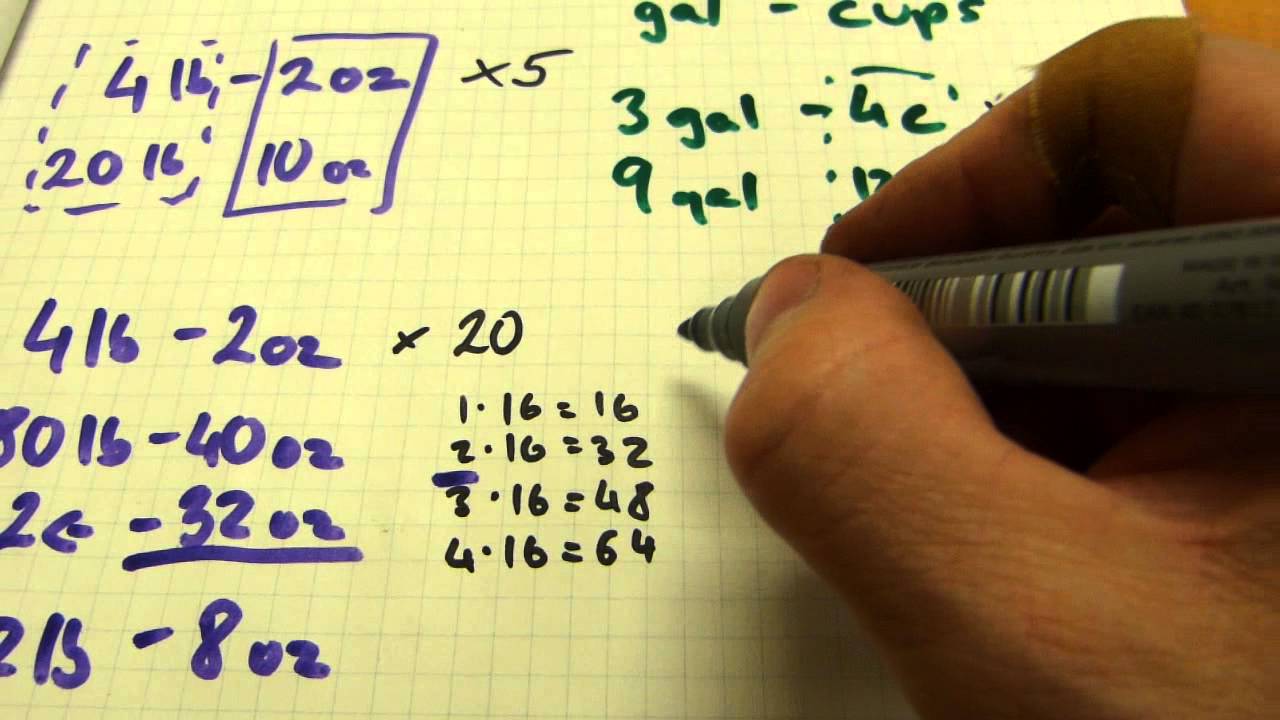 4 lb - 2 oz ×5
20 lb 10 oz
4 lb - 2 oz × 20
80 lb - 40 oz
- 32 oz
2 lb - 8 oz
1 · 16 = 16
2 · 16 = 32
3 · 16 = 48
4 · 16 = 64
gal - cups
3 gal - 4c
9 gal 12